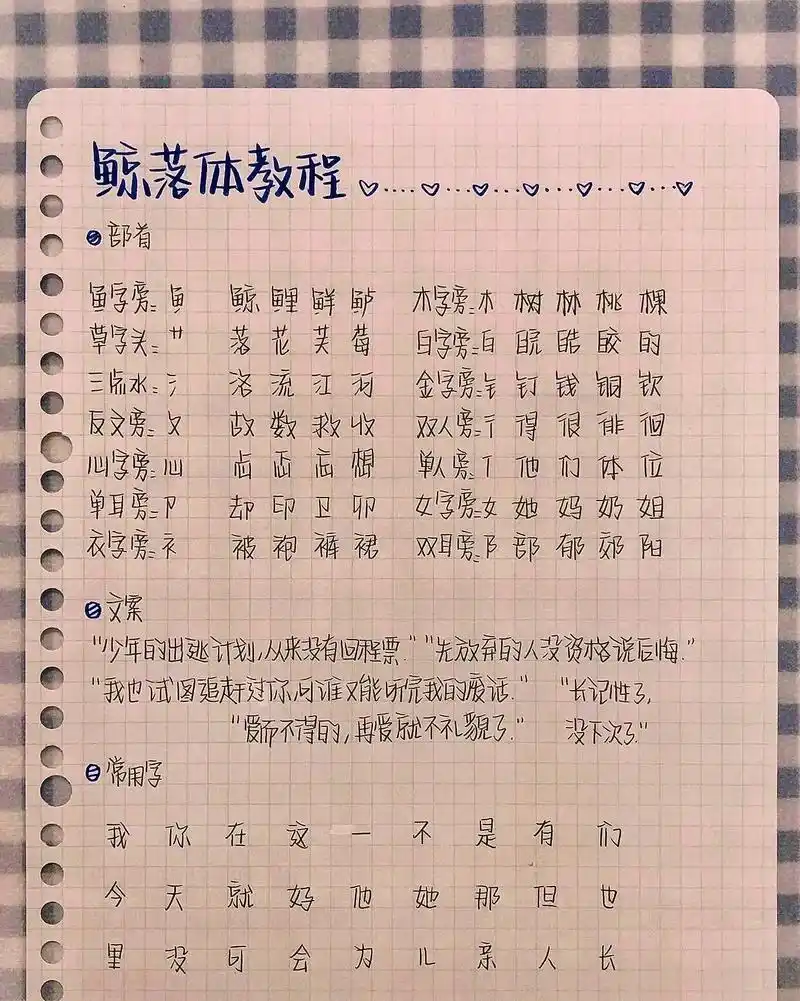 鲸落体教程
部首
鱼字旁: 鱼 鲸 鲤 鲜 鲈 木字旁: 木 树 林 桃 棵
草字头: 艹 落 花 芙 莓 白字旁: 白 皖 皓 皎 的
三点水: 氵 洛 流 江 河 金字旁: 钅 钉 钱 铜 钦
反文旁: 攵 故 数 救 收 双人旁: 彳 得 很 徘 徊
心字旁: 心 志 忑 忘 想 单人旁: 亻 他 们 体 位
单耳旁: 卩 却 印 卫 卯 女字旁: 女 她 妈 奶 姐
衣字旁: 衤 被 袍 裤 裙 双耳旁: 阝 部 郁 郊 阳
文案
"少年的出逃计划,从来没有回程票." "先放弃的人没资格说后悔."
"我也试图追赶过你,可谁又能听完我的废话." "长记性了,
"爱而不得的,再爱就不礼貌了." 没下次了."
常用字
我 你 在 这 一 不 是 有 们
今 天 就 好 他 她 那 但 也
里 没 可 会 为 儿 亲 人 长